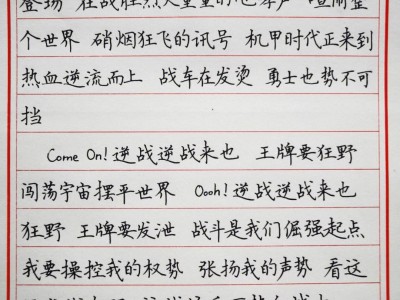 登场 在战胜烈火重重的咆哮声 喧闹整
个世界 硝烟狂飞的讯号 机甲时代正来到
热血逆流而上 战车在发烫 勇士也势不可
挡
Come On!逆战逆战来也 王牌要狂野
闯荡宇宙摆平世界 Oooh!逆战逆战来也
狂野 王牌要发泄 战斗是我们倔强起点
我要操控我的权势 张扬我的声势 看这